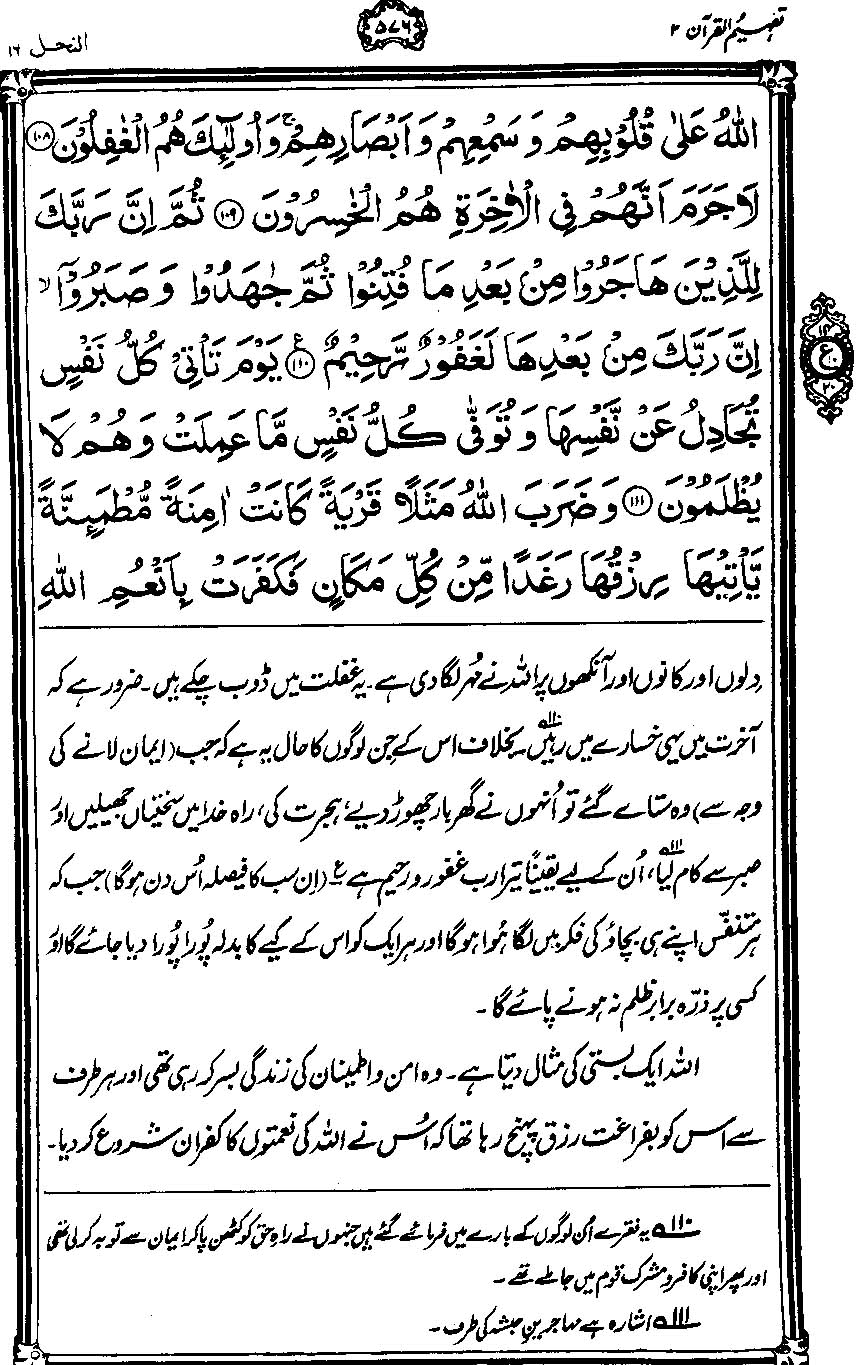 تفہیم القرآن ۲
۵۷۶
النحل ۱۶
اللّٰهُ عَلٰى قُلُوْبِهِمْ وَسَمْعِهِمْ وَاَبْصَارِهِمْ ۚ وَاُولٰٓئِكَ هُمُ الْغٰفِلُوْنَ ﴿۱۰۸﴾
لَا جَرَمَ اَنَّهُمْ فِي الْاٰخِرَةِ هُمُ الْخٰسِرُوْنَ ﴿۱۰۹﴾ ثُمَّ اِنَّ رَبَّكَ
لِلَّذِيْنَ هَاجَرُوْا مِنْۢ بَعْدِ مَا فُتِنُوْا ثُمَّ جٰهَدُوْا وَصَبَرُوْۤا ۙ
اِنَّ رَبَّكَ مِنْۢ بَعْدِهَا لَغَفُوْرٌ رَّحِيْمٌ ﴿۱۱۰﴾ ع يَوْمَ تَاْتِيْ كُلُّ نَفْسٍ
تُجَادِلُ عَنْ نَّفْسِهَا وَتُوَفّٰى كُلُّ نَفْسٍ مَّا عَمِلَتْ وَهُمْ لَا
يُظْلَمُوْنَ ﴿۱۱۱﴾ وَضَرَبَ اللّٰهُ مَثَلًا قَرْيَةً كَانَتْ اٰمِنَةً مُّطْمَئِنَّةً
يَّاْتِيْهَا رِزْقُهَا رَغَدًا مِّنْ كُلِّ مَكَانٍ فَكَفَرَتْ بِاَنْعُمِ اللّٰهِ
ع
۲۰
دِلوں اور کانوں اور آنکھوں پر اللہ نے مُہر لگا دی ہے۔ یہ غفلت میں ڈوب چکے ہیں۔ ضرور ہے کہ
آخرت میں یہی خسارے میں رہیں۱۱۰۔ بخلاف اس کے جن لوگوں کا حال یہ ہے کہ جب (ایمان لانے کی
وجہ سے) وہ ستاے گئے تو اُنہوں نے گھر بار چھوڑ دیے، ہجرت کی، راہ خدا میں سختیاں جھیلیں اور
صبر سے کام لیا۱۱۱، اُن کے لیے یقیناً تیرا رب غفور و رحیم ہے ع (اِن سب کا فیصلہ اُس دن ہوگا) جب کہ
ہر متنفّس اپنے ہی بچاؤ کی فکر میں لگا ہُوا ہوگا اور ہر ایک کو اس کے کیے کا بدلہ پُورا پُورا دیا جائے گا اور
کسی پر ذرّہ برابر ظلم نہ ہونے پائے گا۔
اللہ ایک بستی کی مثال دیتا ہے۔ وہ امن و اطمینان کی زندگی بسر کر رہی تھی اور ہر طرف
سے اس کو بفراغت رزق پہنچ رہا تھا کہ اُس نے اللہ کی نعمتوں کا کفران شروع کر دیا۔
۱۱۰ یہ فقرے اُن لوگوں کے بارے میں فرمائے گئے ہیں جنہوں نے راہِ حق کو کٹھن پا کر ایمان سے توبہ کر لی تھی
اور پھر اپنی کافر و مشرک قوم میں جا ملے تھے۔
۱۱۱ اشارہ ہے مہاجرینِ حبشہ کی طرف۔